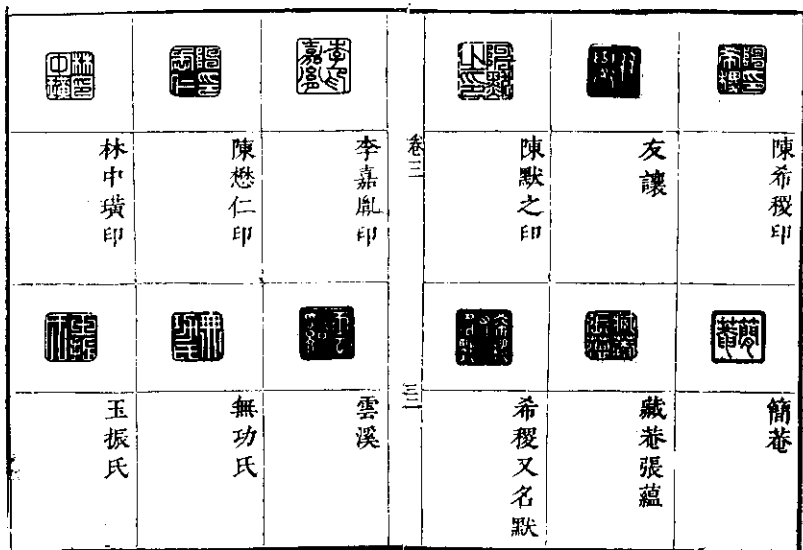 陳希稷印
友讓
陳默之印
簡菴
藏菴張蘊
希稷又名默
卷三
三二
李嘉胤印
陳懋仁印
林中璜印
雲溪
無功氏
玉振氏